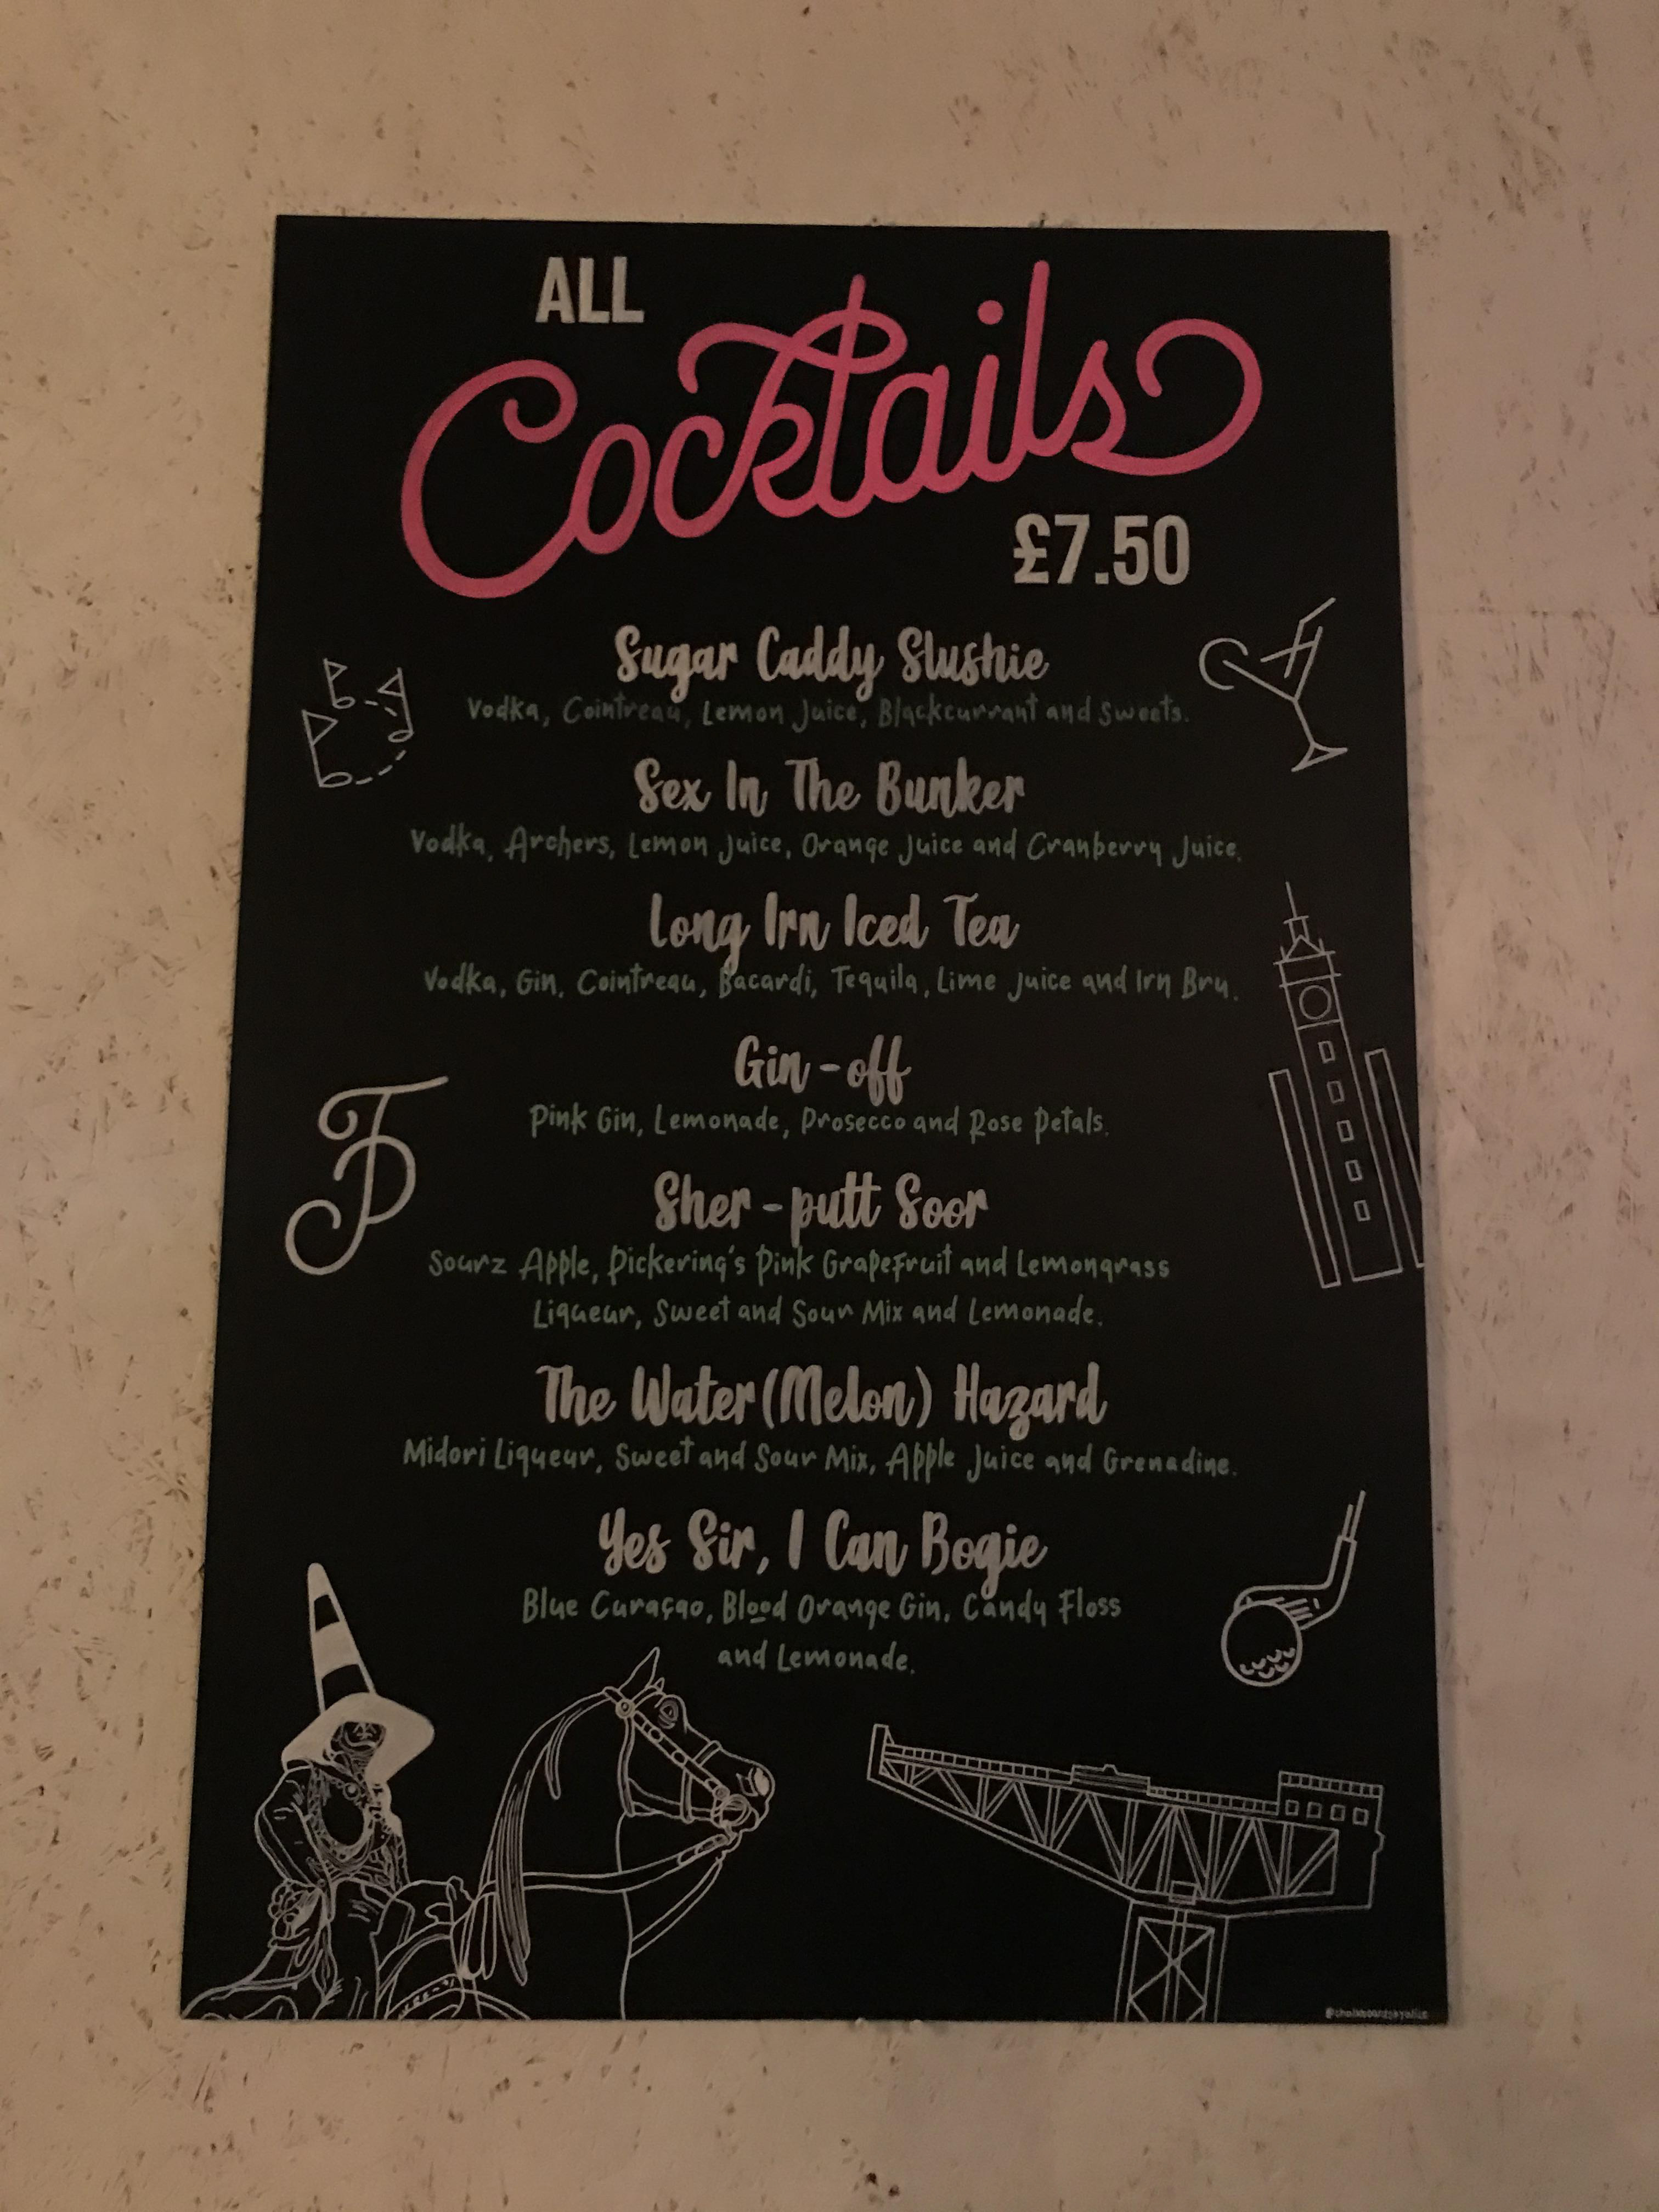 ALL
Cocktails
£7.50
Sugar Caddy Slushie
Vodka, Cointreau, Lemon Juice, Blackcurrant and Sweets.
Sex In The Bunker
Vodka, Archers, Lemon Juice, Orange Juice and Cranberry Juice.
Long Irn Iced Tea
Vodka, Gin, Cointreau, Bacardi, Tequila, Lime Juice and Irn Bru.
Gin-off
Pink Gin, Lemonade, Prosecco and Rose Petals.
Sher-putt Soor
Sourz Apple, Pickering's Pink Grapefruit and Lemongrass
Liqueur, Sweet and Sour Mix and Lemonade.
The Water(Melon) Hazard
Midori Liqueur, Sweet and Sour Mix, Apple Juice and Grenadine.
Yes Sir, I Can Bogie
Blue Curaçao, Blood Orange Gin, Candy Floss
and Lemonade.